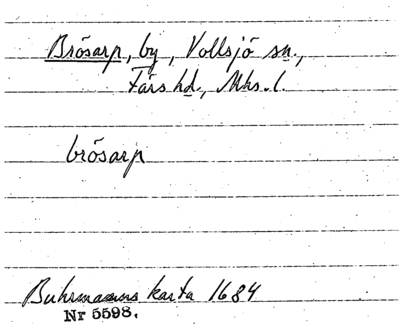 Brösarp, by, Vollsjö sn.,
Färs hd., Mhs. l.
brösarp
Buhrmanns karta 1684
Nr 5598.